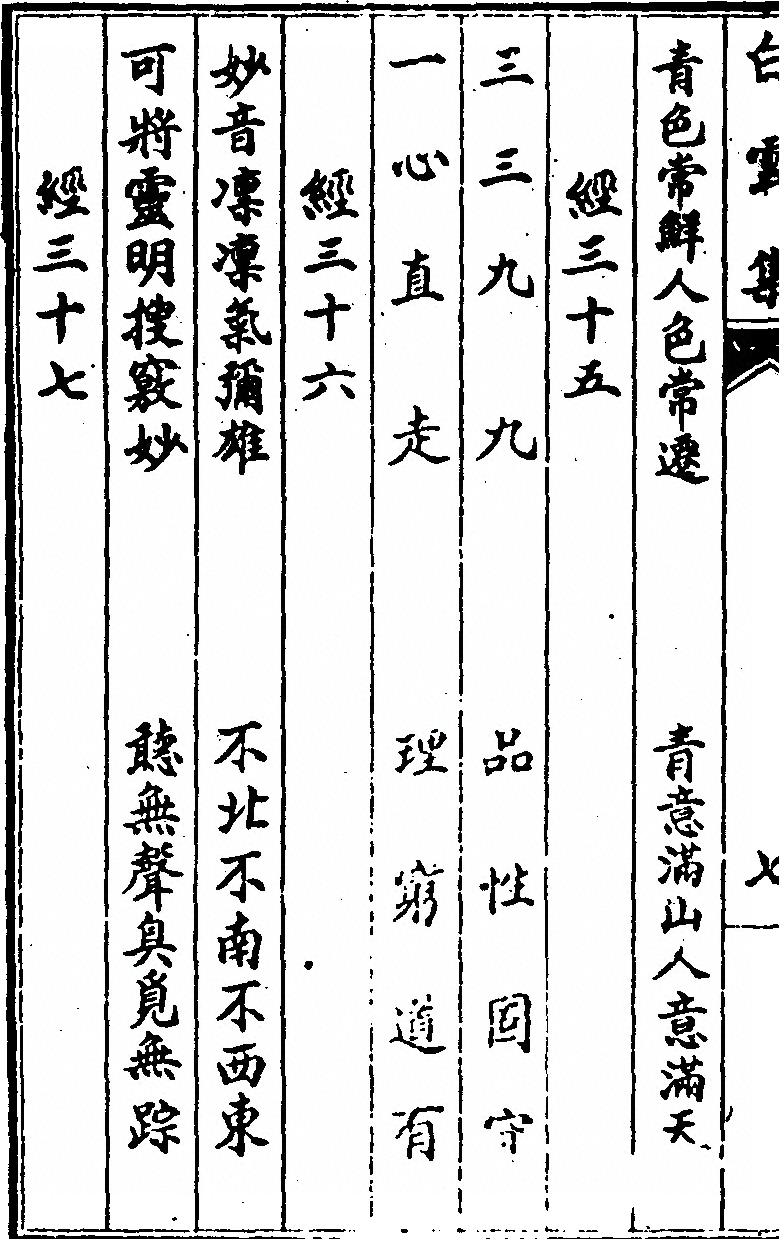 白雲集 七
青色常鮮人色常遷 青意滿山人意滿天
經三十五
三三九九 品性固守
一心直走 理窮道有
經三十六
妙音凛凛氣彌雄 不北不南不西東
可將靈明搜竅妙 聽無聲臭覓無踪
經三十七